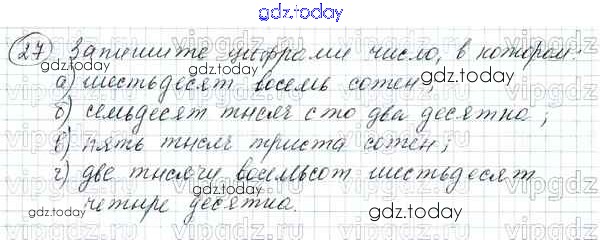 gdz.today
27 Запишите цифрами число, в котором:
а) шестьдесят восемь сотен;
gdz.today gdz.today
б) семьдесят тысяч сто два десятка;
в) пять тысяч триста сотен;
gdz.today
г) две тысячи восемьсот шестьдесят
четыре десятка.
gdz.today gdz.today